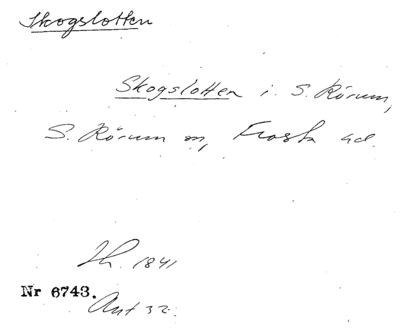 Skogslotten
Skogslotten i S. Rörum,
S. Rörum sn, Frosta hd.
Lh. 1841
Nr 6743.
Ant 32.